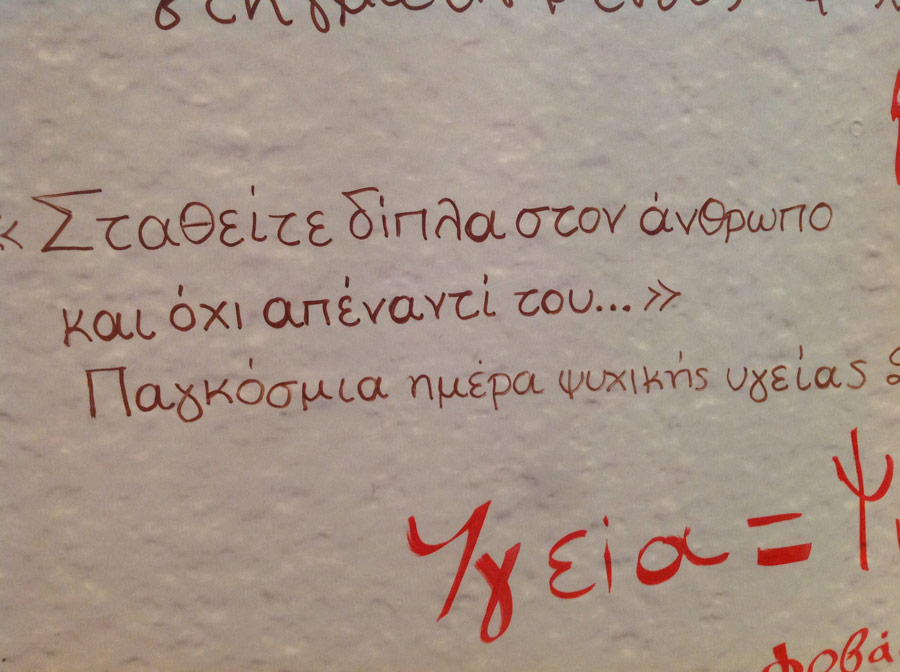 «Σταθείτε δίπλα στον άνθρωπο
και όχι απέναντί του...»
Παγκόσμια ημέρα ψυχικής υγείας
Υγεία = Ψ
φοβά